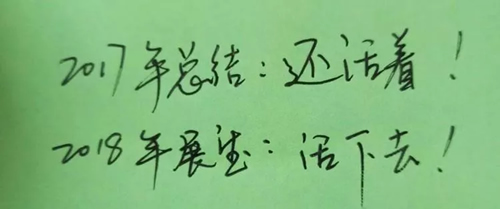 2017年总结：还活着！
2018年展望：活下去！